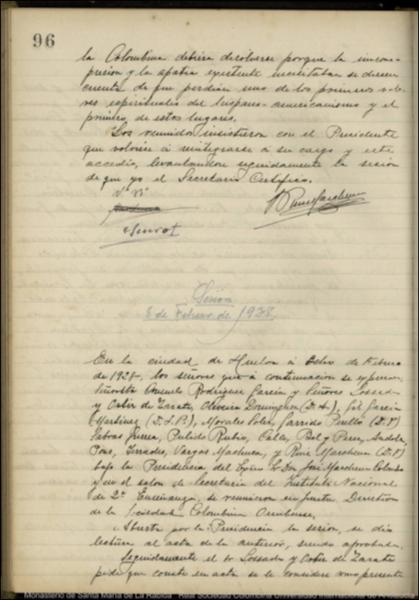 96
la Colombina debiera disolverse porque la incom-
prension y la apatia existente necesitaban se dieran
cuenta de que perdían uno de los primeros valo-
res espirituales del hispano-americanismo y el
primero de estos lugares.
Los reunidos insistieron con el Presidente
que volviese á reintegrarse á su cargo y este
accedió, levantandose seguidamente la sesion
de que yo el Secretario Certifico.
Vº Bº
Sesion
8 de Febrero de 1928
En la ciudad de Huelva á ocho de Febrero
de 1928, los señores que á continuacion se expresan,
Señorita Consuelo Rodriguez Garcia y Señores Lossada
y Ortiz de Zarate, Oliveira Dominguez (D. A.), Gil Garcia
Martinez (D. J. Pº), Morales Soler, Garrido Perelló (D. Pº)
Sabras Jurea, Pulido Rubio, Calle,
Pons, Terrades, Vargas Machuca, y Ruiz Marchena (D. Pº)
bajo la Presidencia del Excmo Sr. Don José Marchena Colombo
y en el salon de Secretaria del Instituto Nacional
de 2ª Enseñanza, se reunieron en Junta Directiva
de la Sociedad Colombina Onubense.
Abierta por la Presidencia la sesion, se dio
lectura al acta de la anterior, siendo aprobada.
Seguidamente el Sr Lossada y Ortiz de Zarate
pide que conste en acta se le considere como presente
Monasterio de Santa María de La Rábida